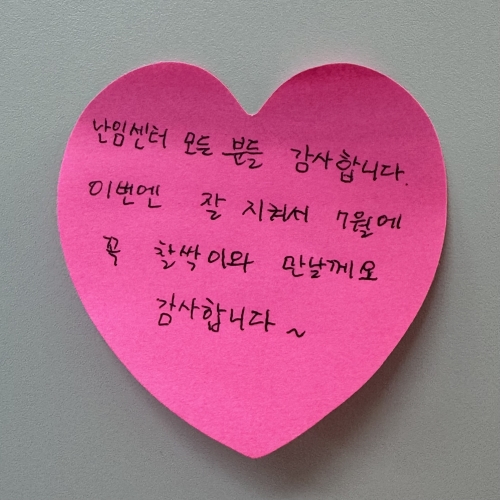 난임센터 모든 분들 감사합니다.
이번엔 잘 지켜서 7월에
꼭 찰싹이와 만날께요
감사합니다~